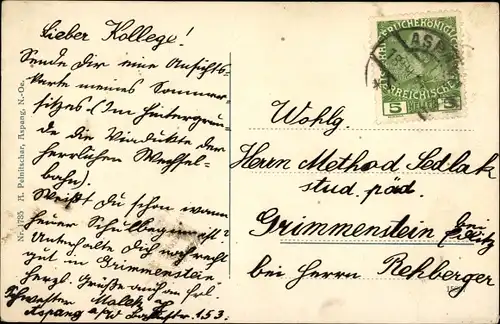 Lieber Kollege!
Sende Dir eine Ansichts-
karte meines Sommer-
sitzes (Im Hintergrun-
de die Viadukte der
herrlichen Wechsel-
bahn).
Weißt Du schon wann
heuer Schulbeginn ist?
Unterhalte Dich noch recht
gut in Grimmenstein
herzl. Grüße auch an Frl.
Schwester
Aspang a/W 153.
Nr. 1785 H. Pelnitschar, Aspang, N.-Oe.
KAISERLICHE KÖNIGLICHE
ÖSTERREICHISCHE
5 HELLER 5
ASPANG
Wohlg.
Herrn Method Sedlak
stud. päd.
Grimmenstein bei
bei Herrn Rehberger